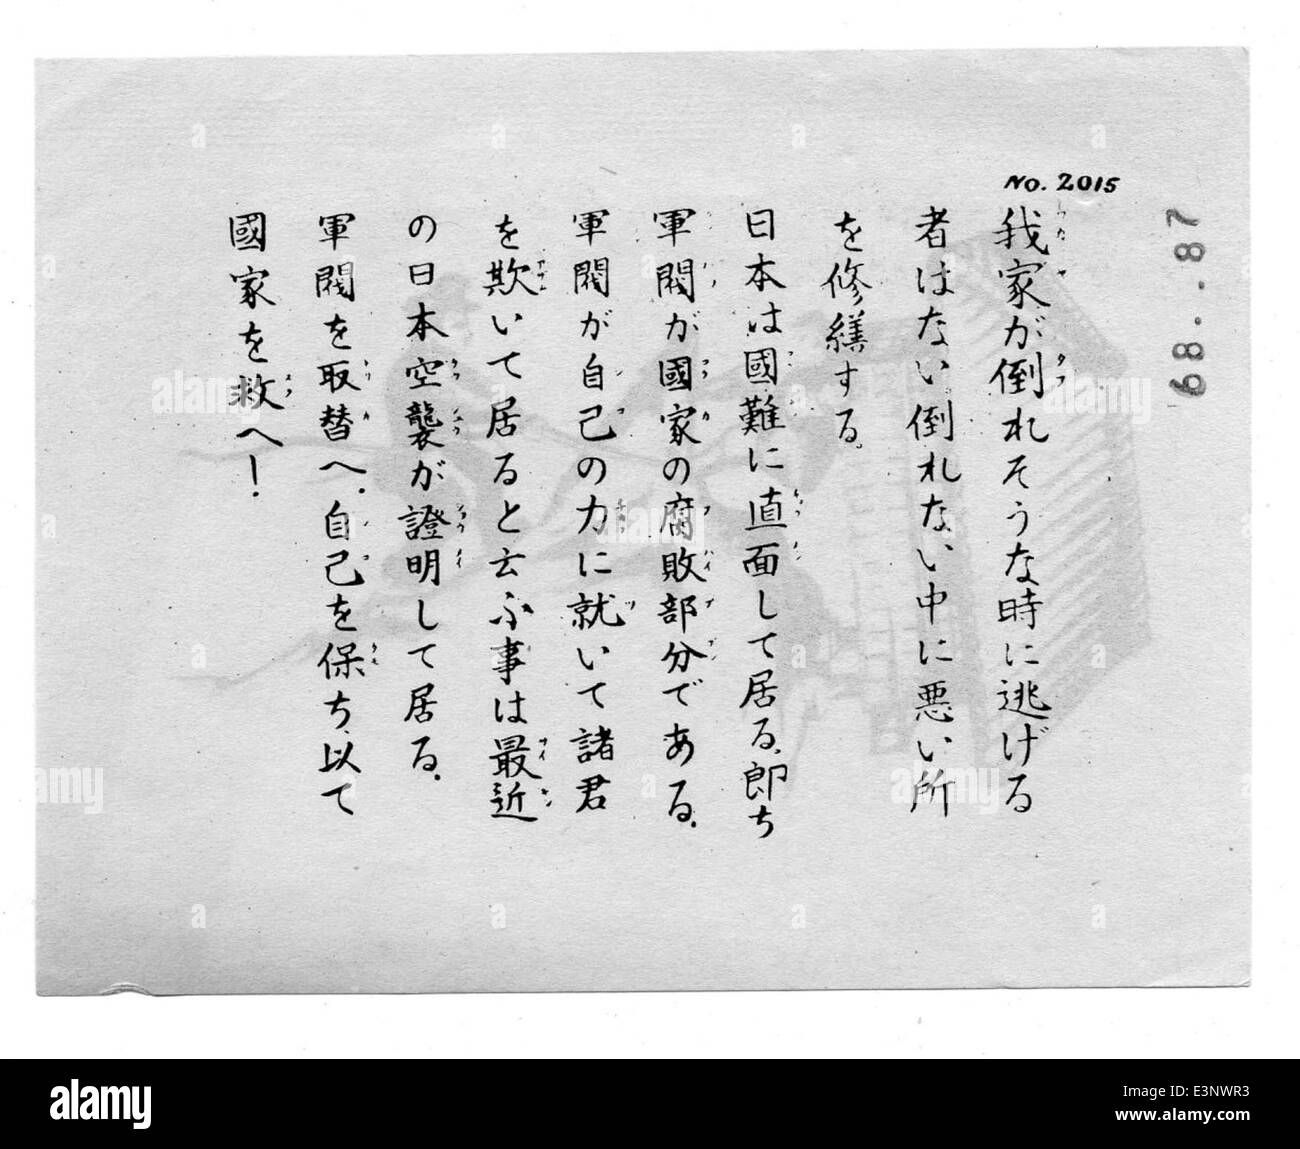 No. 2015
68-87
我家が倒れそうな時に逃げる
者はない倒れない中に悪い所
を修繕する。
日本は國難に直面して居る、即ち
軍閥が國家の腐敗部分である。
軍閥が自己の力に就いて諸君
を欺いて居ると云ふ事は最近
の日本空襲が證明して居る。
軍閥を取替へ、自己を保ち、以て
國家を救へ!
alamy
Image ID: E3NWR3
www.alamy.com